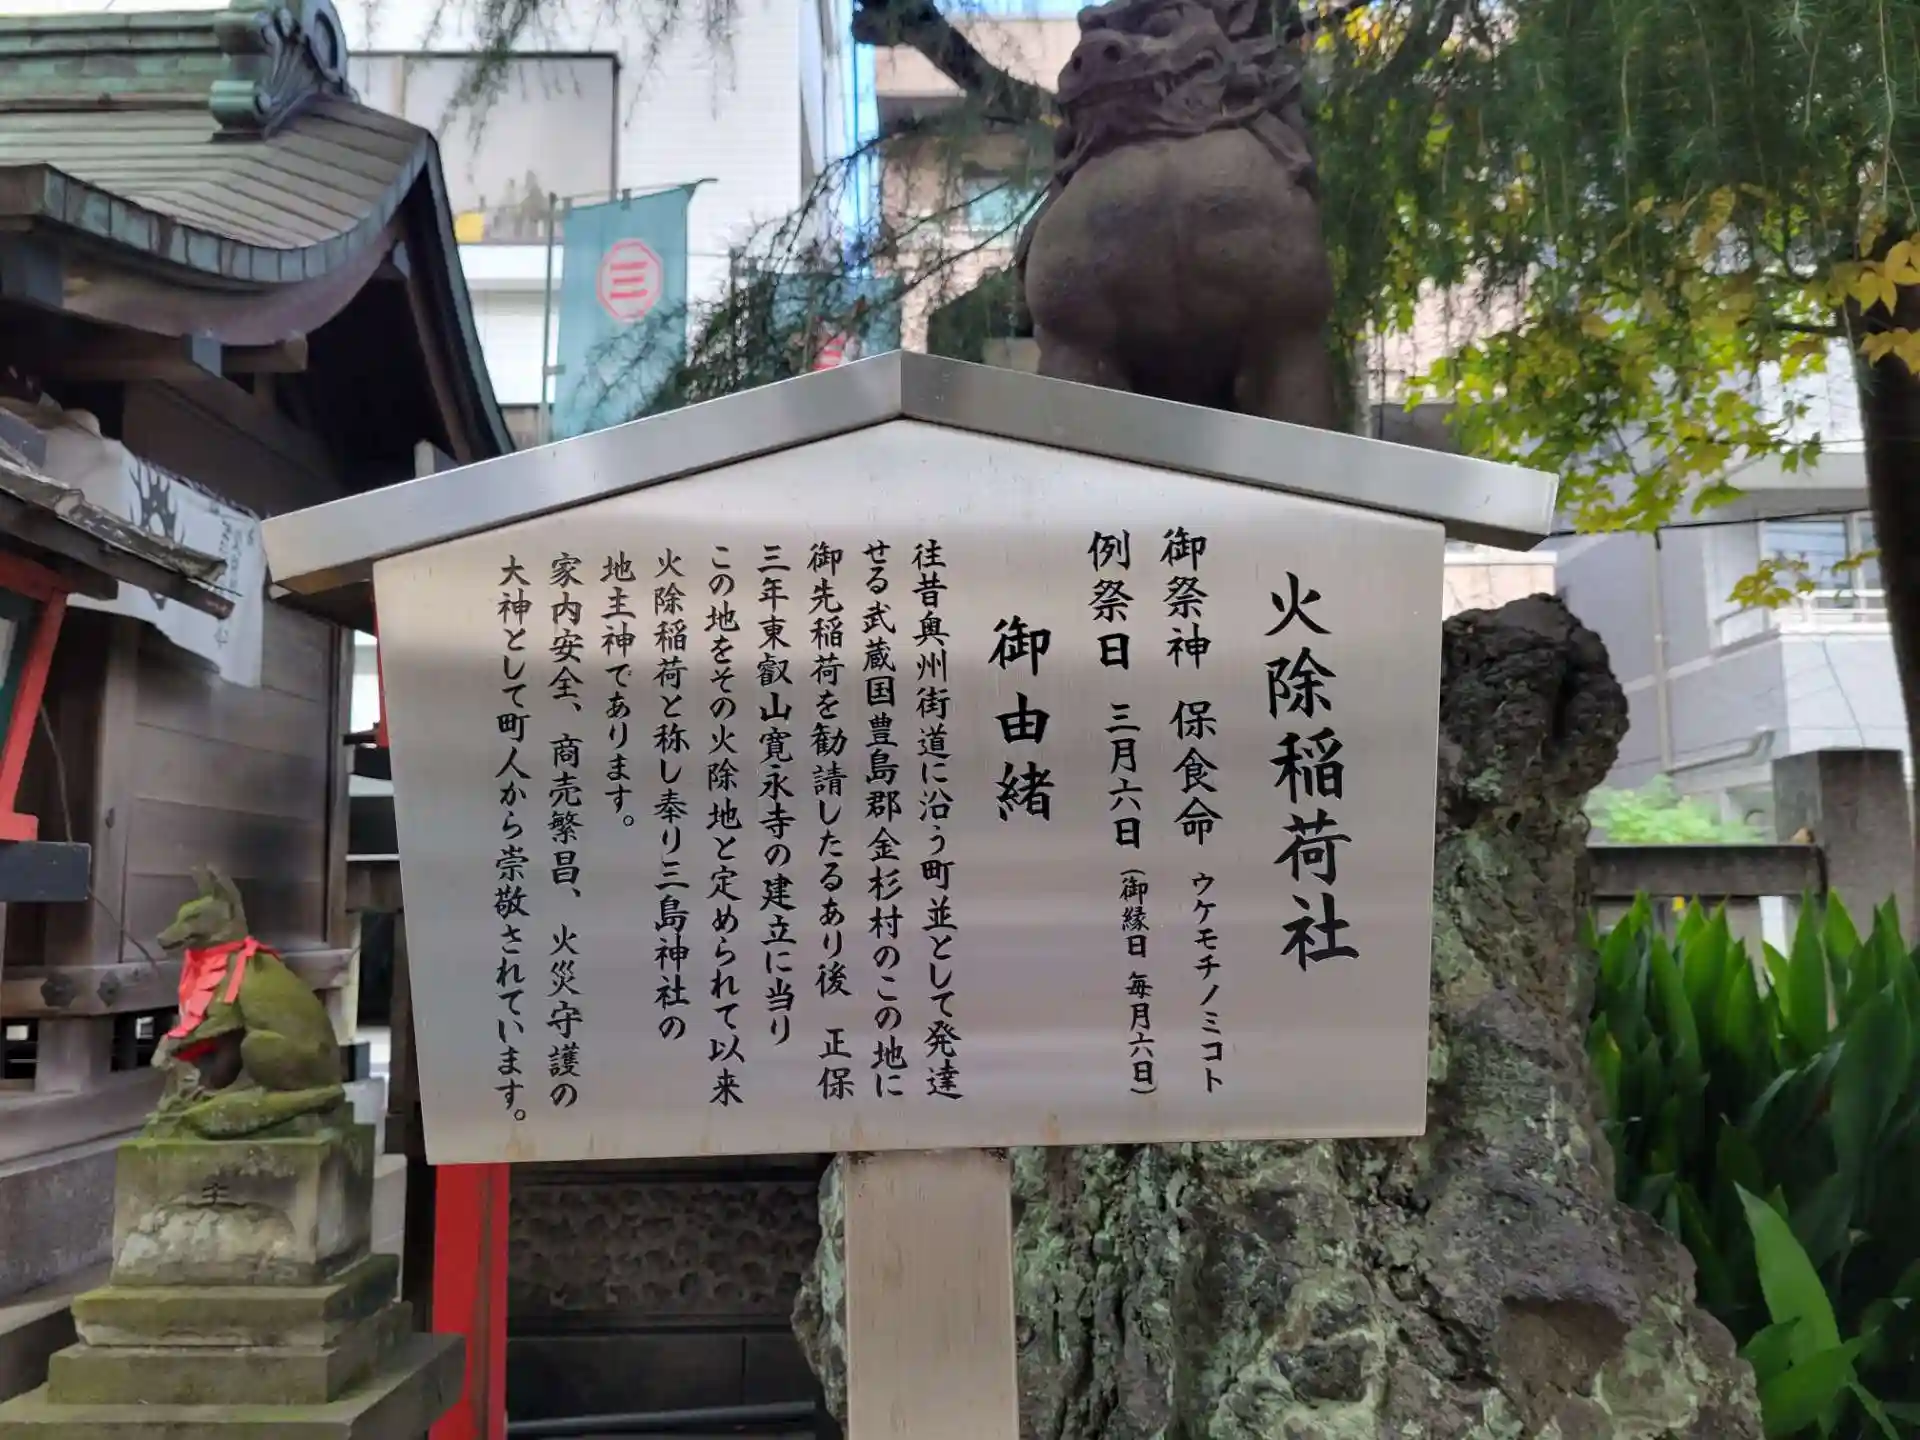 火除稲荷社
御祭神 保食命 ウケモチノミコト
例祭日 三月六日（御縁日 毎月六日）
御由緒
往昔奥州街道に沿う町並として発達
せる武蔵国豊島郡金杉村のこの地に
御先稲荷を勧請したるあり後 正保
三年東叡山寛永寺の建立に当り
この地をその火除地と定められて以来
火除稲荷と称し奉り三島神社の
地主神であります。
家内安全、商売繁昌、火災守護の
大神として町人から崇敬されています。
三